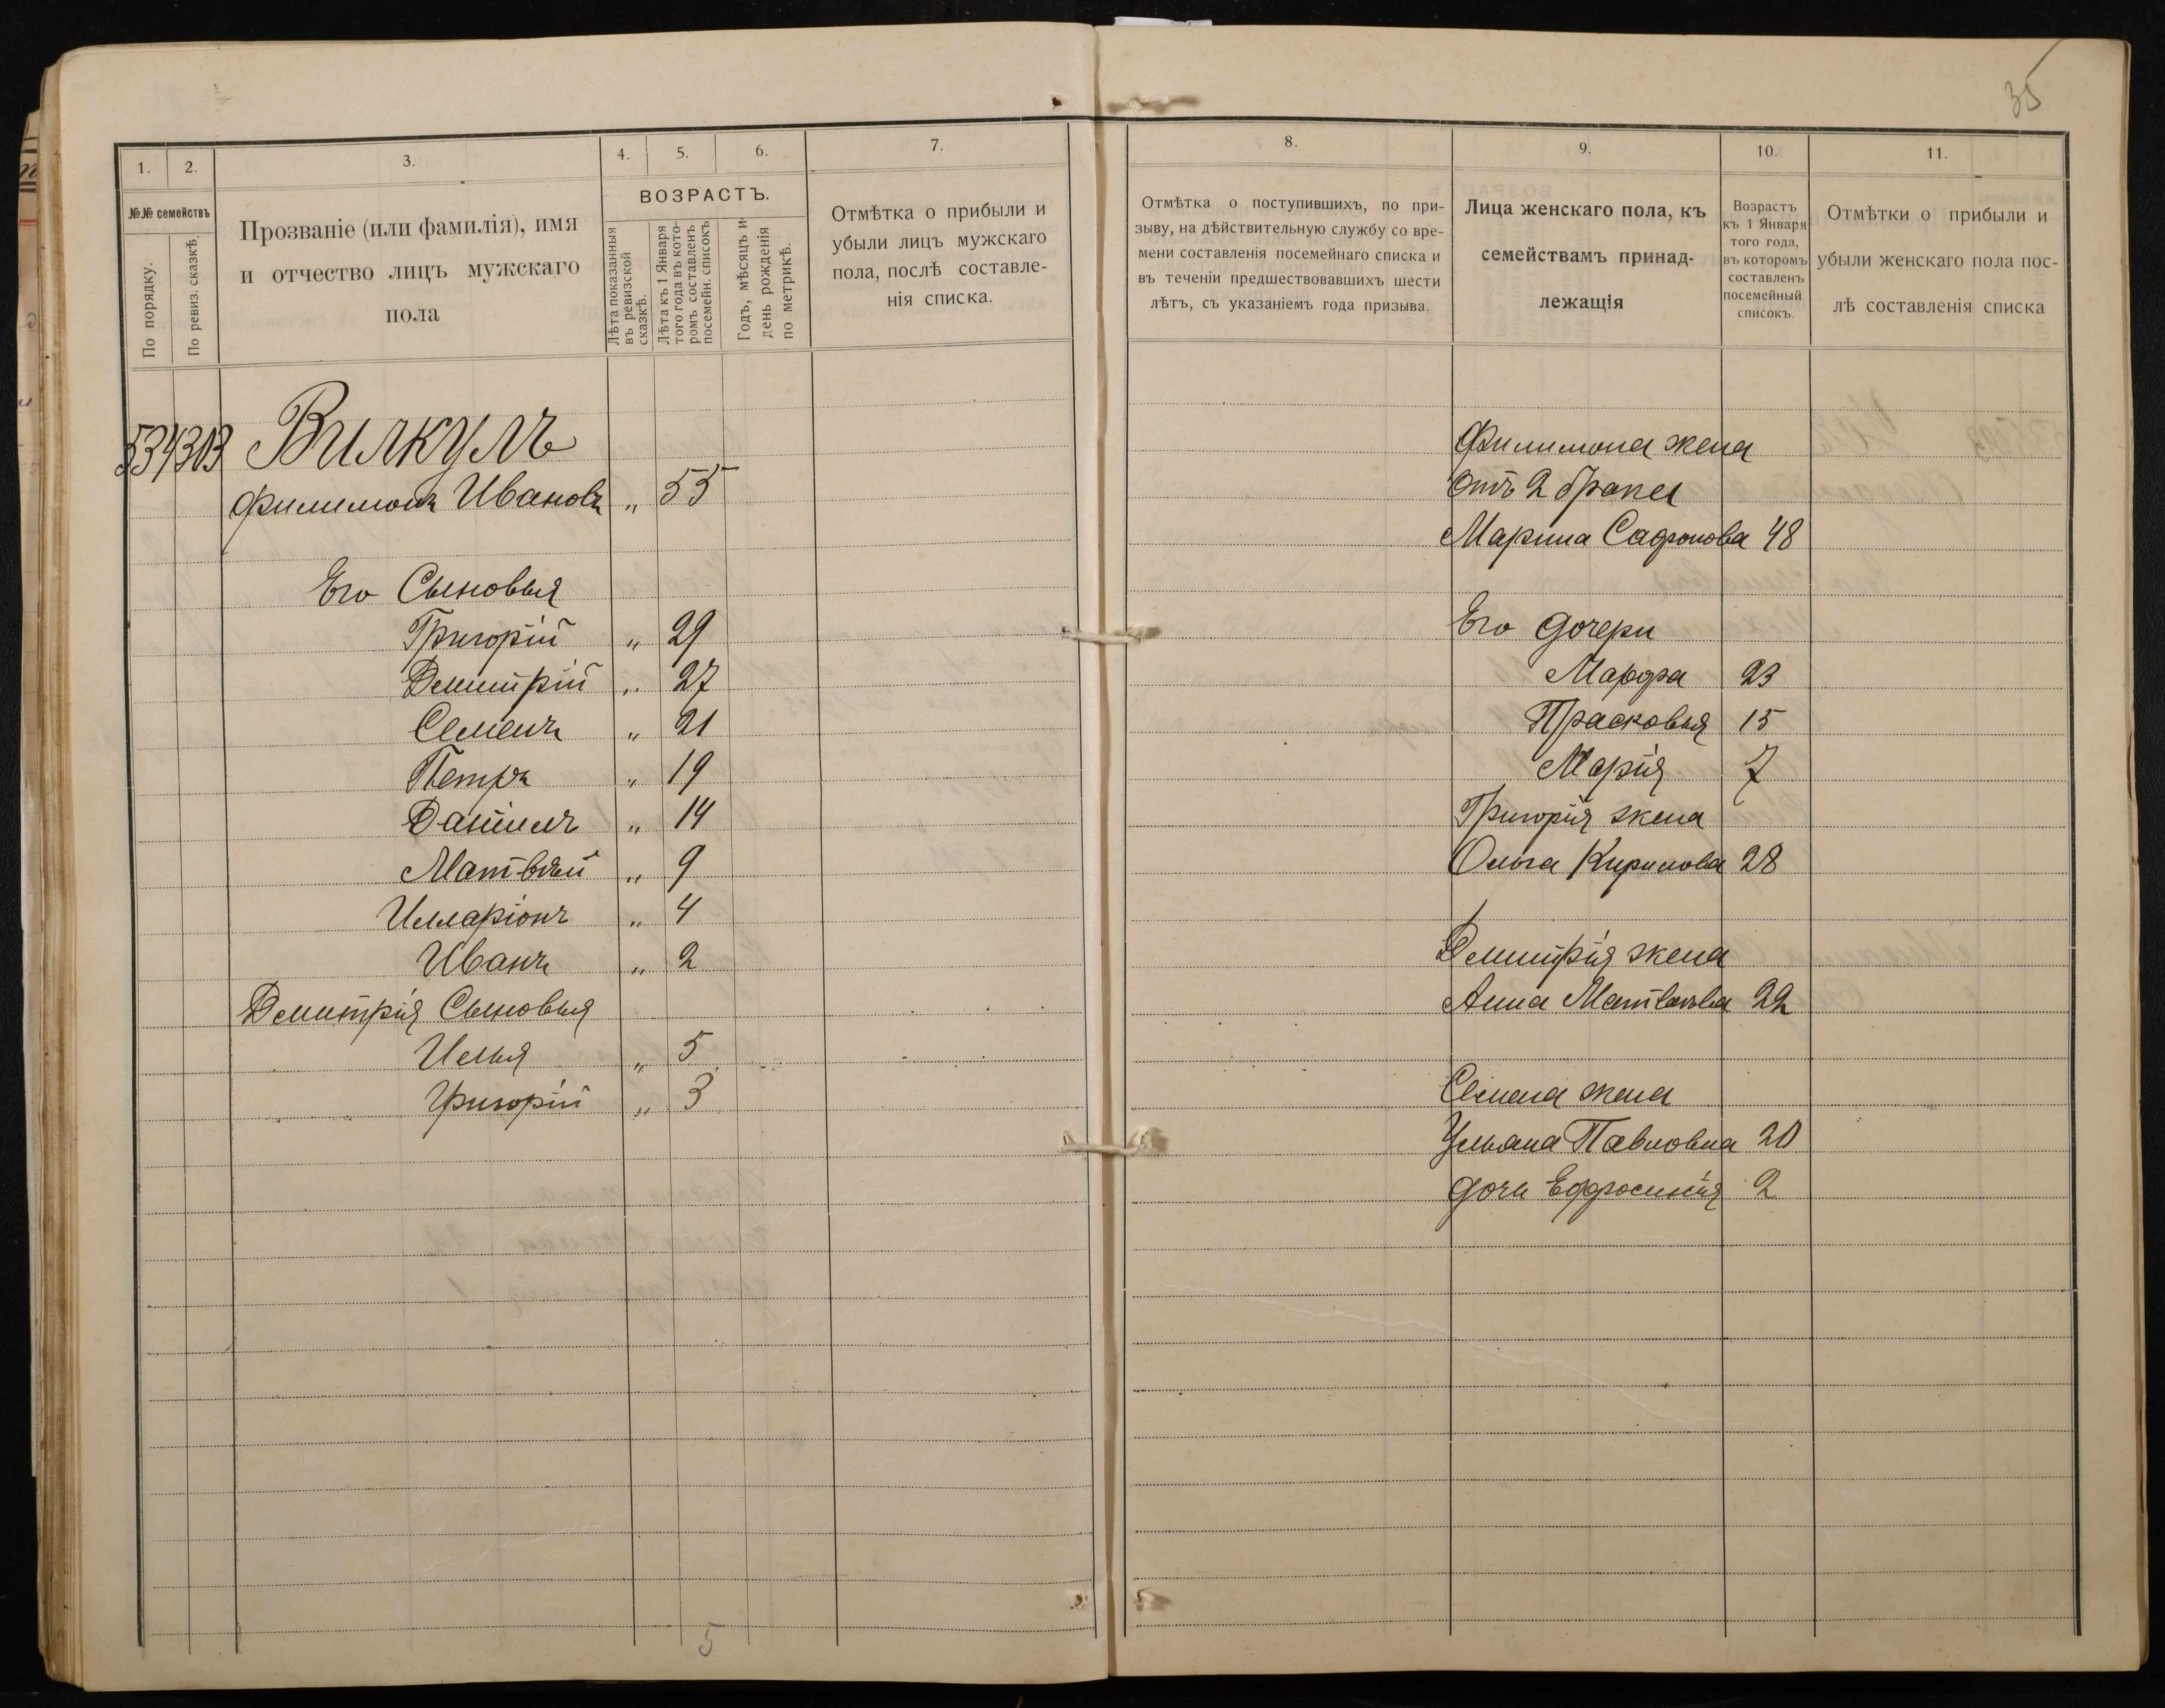 35
1.
2.
3.
4.
5.
6.
7.
№№ семействъ
По порядку.
По ревиз. сказкѣ.
Прозваніе (или фамилія), имя
и отчество лицъ мужскаго
пола
ВОЗРАСТЪ.
Лѣта показанныя
въ ревизской
сказкѣ.
Лѣта къ 1 Января
того года въ кото-
ромъ составленъ
посемейн. списокъ
Годъ, мѣсяцъ и
день рожденія
по метрикѣ.
Отмѣтка о прибыли и
убыли лицъ мужскаго
пола, послѣ составле-
нія списка.
Вилкулъ
Филимонъ Ивановъ „ 55
Его Сыновья
Григорій „ 29
Дмитрій „ 27
Семенъ „ 21
Петръ „ 19
Даніилъ „ 14
Матвѣй „ 9
Илларіонъ „ 4
Иванъ „ 2
Дмитрія Сыновья
Илья „ 5
Григорій „ 3
5
8.
9.
10.
11.
Отмѣтка о поступившихъ, по при-
зыву, на дѣйствительную службу со вре-
мени составленія посемейнаго списка и
въ теченіи предшествовавшихъ шести
лѣтъ, съ указаніемъ года призыва.
Лица женскаго пола, къ
семействамъ принад-
лежащія
Возрастъ
къ 1 Января
того года,
въ которомъ
составленъ
посемейный
списокъ.
Отмѣтки о прибыли и
убыли женскаго пола пос-
лѣ составленія списка
Филимона жена
отъ 2 брака
Марина Сафронова 48
Его дочери
Марфа 23
Прасковья 15
Марія 7
Григорія жена
Ольга Кирилова 28
Дмитрія жена
Анна Матвѣева 22
Семена жена
Ульана Павловна 20
дочь Ефросинія 2